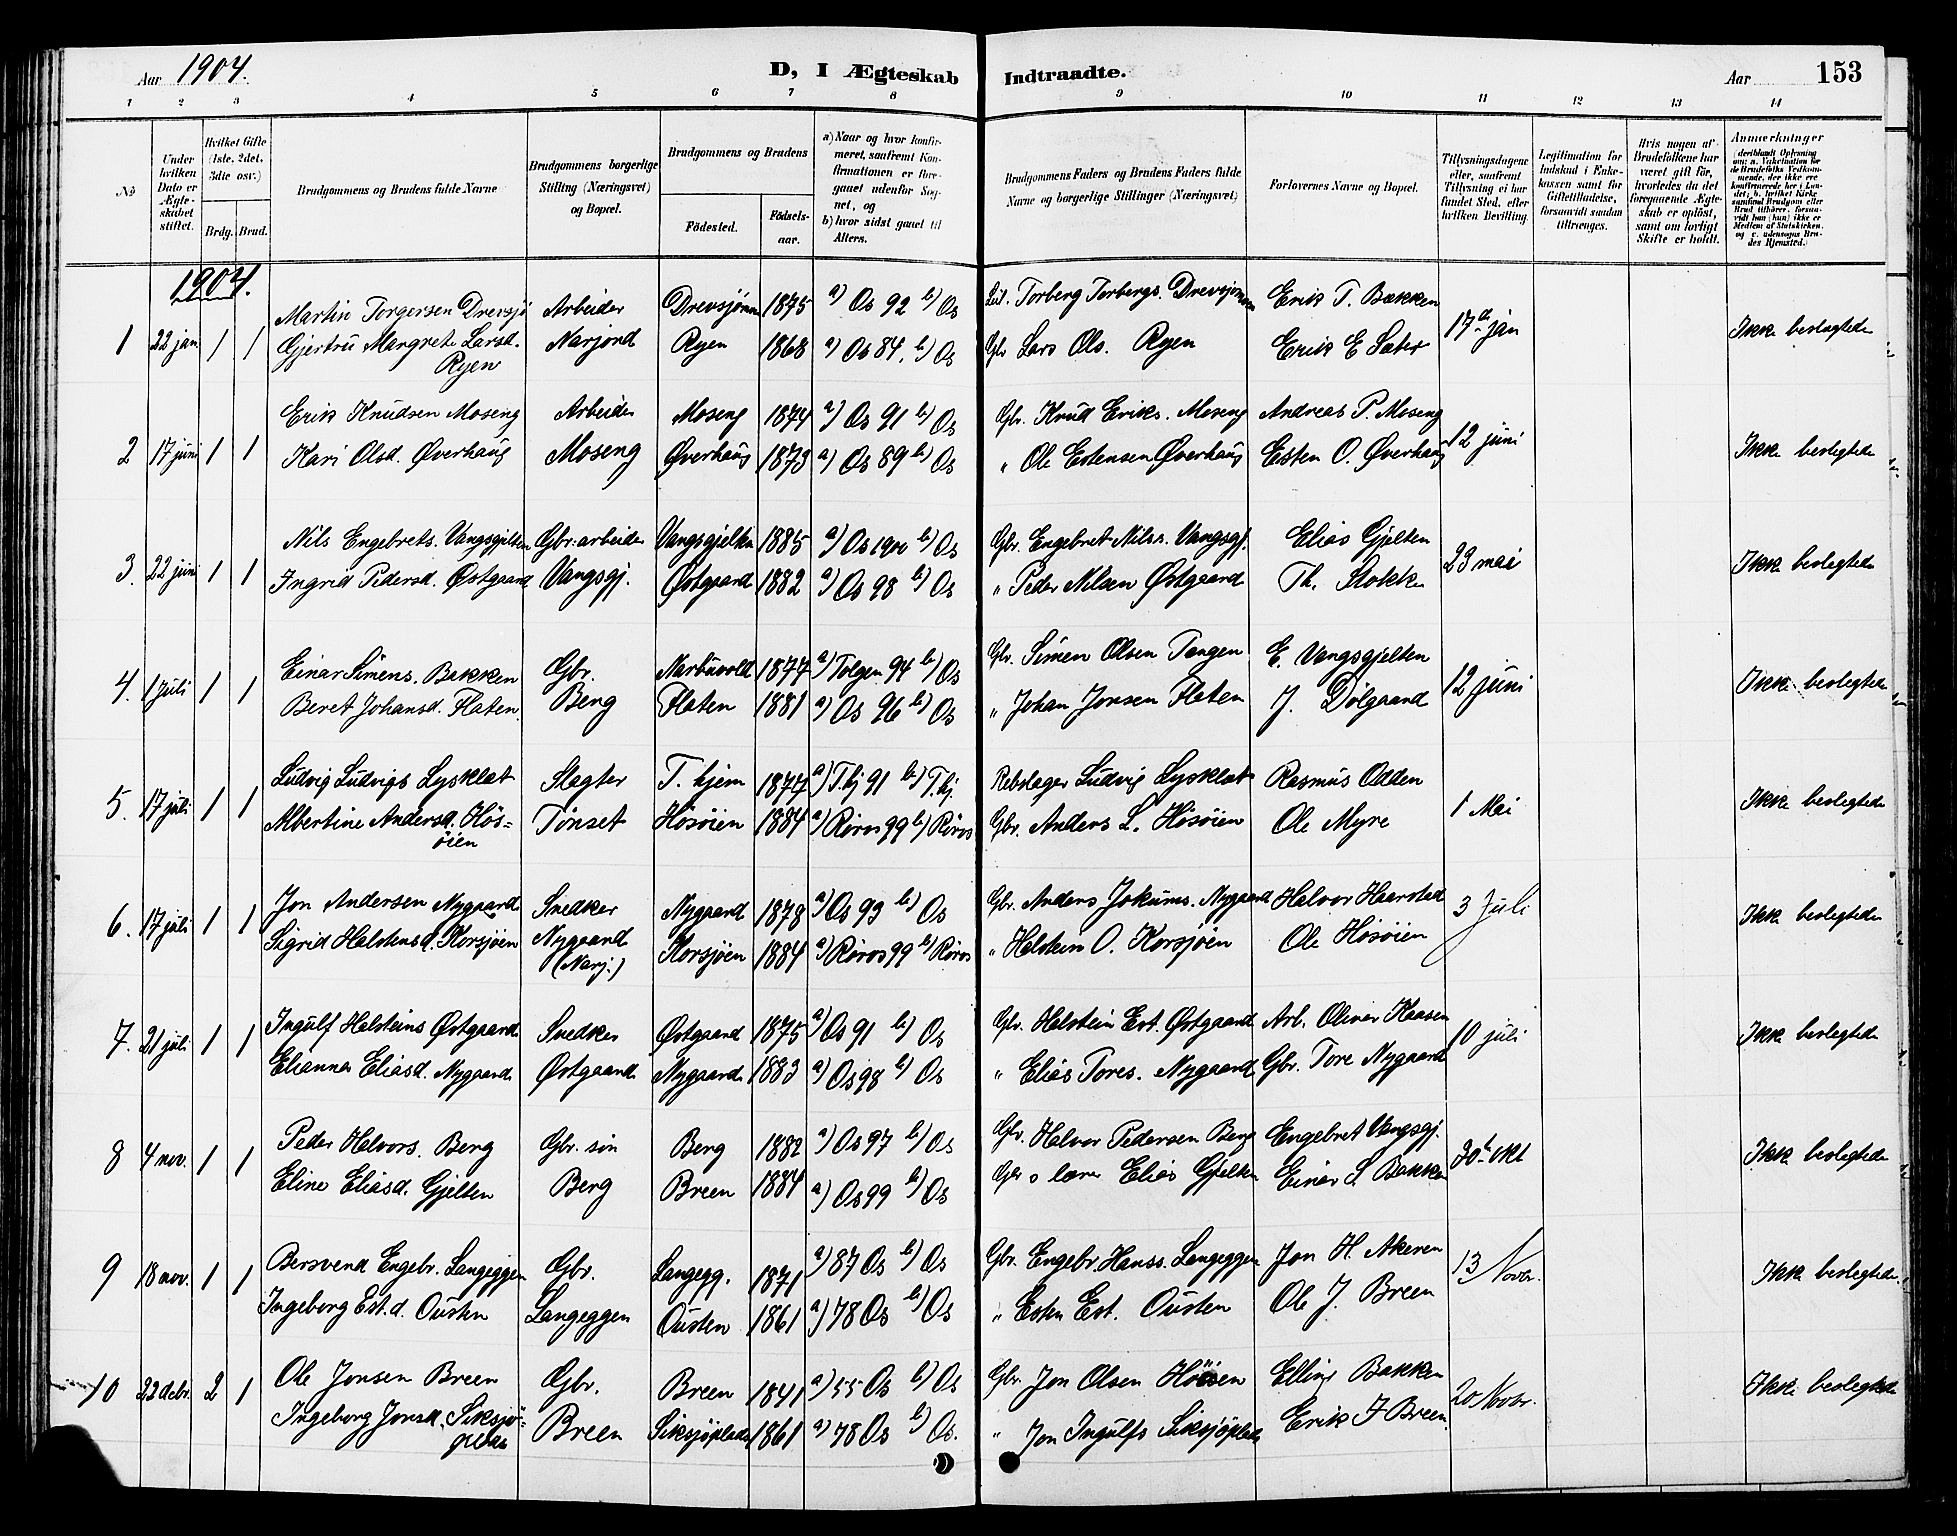 Aar 1904.
D, I Ægteskab Indtraadte.
Aar 153
1 2 3 4 5 6 7 8 9 10 11 12 13 14
No
Under hvilken Dato er Ægteskabet stiftet.
Hvilket Gifte (1ste, 2det, 3die osv.)
Brdg. Brud.
Brudgommens og Brudens fulde Navne
Brudgommens borgerlige Stilling (Næringsvei) og Bopæl.
Brudgommens og Brudens
Fødested. Fødselsaar.
a) Naar og hvor konfirmeret, saafremt Konfirmationen er foregaaet udenfor Sognet, og
b) hvor sidst gaaet til Alters.
Brudgommens Faders og Brudens Faders fulde Navne og borgerlige Stillinger (Næringsvei)
Forlovernes Navne og Bopæl.
Tillysningsdagene eller, saafremt Tillysning ei har fundet Sted, efter hvilken Bevilling.
Legitimation for Indskud i Enkekassen samt for Giftetilladelse, forsaavidt saadan tiltrænges.
Hvis nogen af Brudefolkene har været gift før, hvorledes da det foregaaende Ægteskab er opløst, samt om lovligt Skifte er holdt.
Anmerkninger
1904.
1 22 jan 1 1 Martin Torgersen Drevsjø Arbeider Drevsjømoen 1875 a) Os 92 b) Os Torberg Torbergs. Drevsjømoen Erik T. Bakken 17de jan Ikke beslegtede
Gjertru Margrete Larsd. Ryen Narjord Ryen 1868 a) Os 84. b) Os Gbr Lars Ols. Ryen Erik E Sæter
2 17 juni 1 1 Erik Knudsen Moseng Arbeider Moseng 1874 a) Os 91 b) Os Gbr. Knud Eriks. Moseng Andreas P. Moseng 12 juni Ikke beslegtede
Kari Olsd. Øverhaug Moseng Øverhaug 1873 a) Os 89 b) Os " Ole Estensen Øverhaug Esten O. Øverhaug
3. 22 juni 1 1 Nils Engebrets. Vangsgjelten Gbr. arbeider Vangsgjelten 1885 a) Os 1900 b) Os Gbr. Engebret Nilss. Vangsgj. Elias Gjelten 23 mai Ikke beslegtede
Ingrid Pedersd. Østgaard Vangsgj. Østgaard 1882 a) Os 98 b) Os " Peder Nilsen Østgaard Th. Stokke
4. 1 juli 1 1 Einar Simens. Bakken Gbr. Narbuvold 1877 a) Tolgen 94 b) Os Gbr. Simen Olsen Tangen E. Vangsgjelten 12 juni Ikke beslegtede
Beret Johansd. Flaten. Berg Flaten 1881 a) Os 96 b) Os " Johan Jonsen Flaten J. Dølgaard
5. 17 juli 1 1 Ludvig Ludvigs Lysklet Slagter T.hjem 1874 a) T.hj 91 b) T.hj. Rebslager Ludvig Lysklet Rasmus Odden 1 Mai Ikke beslegtede
Albertine Andersd. Høsøien Tønset Høsøien 1884 a) Røros 99 b) Røros Gbr. Anders L. Høsøien Ole Myre
6. 17 juli 1 1 Jon Andersen Nygaard Snedker Nygaard 1878 a) Os 93 b) Os Gbr. Anders Jokums. Nygaard Halvor Haarstad 3 Juli Ikke beslegtede
Sigrid Halstensd. Korsjøen Nygaard (Narj.) Korsjøen 1884 a) Røros 99 b) Røros " Halstein O. Korsjøen Ole Høsøien
7. 21 juli 1 1 Ingulf Halsteins Østgaard Snedker Østgaard 1875 a) Os 91 b) Os Gbr. Halstein Est. Østgaard Arb. Oliver Kaasen 10 juli Ikke beslegtede
Elianna Eliasd. Nygaard Østgaard Nygaard 1883 a) Os 98 b) Os " Elias Tores. Nygaard Gbr. Tore Nygaard
8 4 nov. 1 1 Peder Halvors. Berg Gbr. søn Berg 1882 a) Os 97 b) Os Gbr. Halvor Pedersen Berg Engebret Vangsgj. 30te okt Ikke beslegtede
Eline Eliasd. Gjelten Berg Breen 1884 a) Os 99 b) Os Gbr o lærer Elias Gjelten Einar S. Bakken
9 18 nov. 1 1 Bersvend Engebr. Langeggen Gbr. Langegg. 1871 a) 87 Os b) Os Gbr. Engebr. Hanss. Langeggen Jon H. Akeren 13 Novbr. Ikke beslegtede
Ingeborg Est.d. Ousten Langeggen Ousten 1861 a) 78 Os b) Os " Esten Est. Ousten Ole J. Breen
10 22 debr. 2 1 Ole Jonsen Breen Gbr. Breen 1841 a) 55 Os b) Os Gbr. Jon Olsen Høisen Elling Bakken 20 Novbr. Ikke beslegtede
Ingeborg Jonsd. Siksjøplads Breen Siksjøplads 1861 a) 78 Os b) Os. " Jon Ingulfs Siksjøplads Erik J Breen